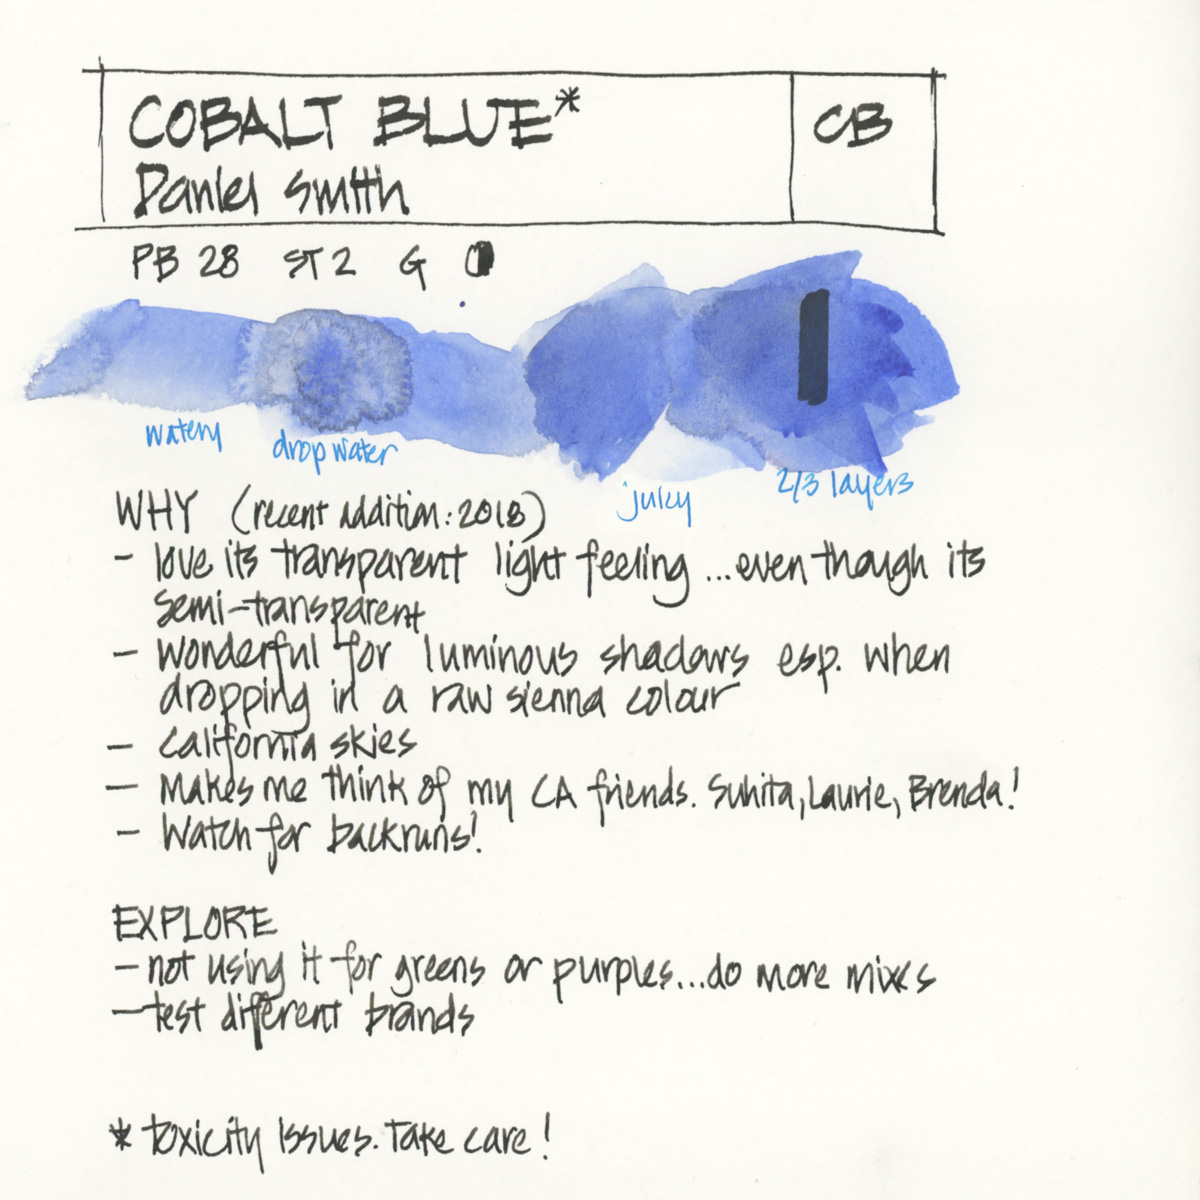 COBALT BLUE* CB
Daniel Smith
PB 28 ST 2 G
watery
drop water
juicy
2/3 layers
WHY (recent addition: 2018)
- love its transparent light feeling ...even though its
semi-transparent
- wonderful for luminous shadows esp. when
dropping in a raw sienna colour
- California skies
- Makes me think of my CA friends. Suhita, Laurie, Brenda!
- Watch for backruns!
EXPLORE
- not using it for greens or purples...do more mixes
- test different brands
* toxicity issues. Take care!